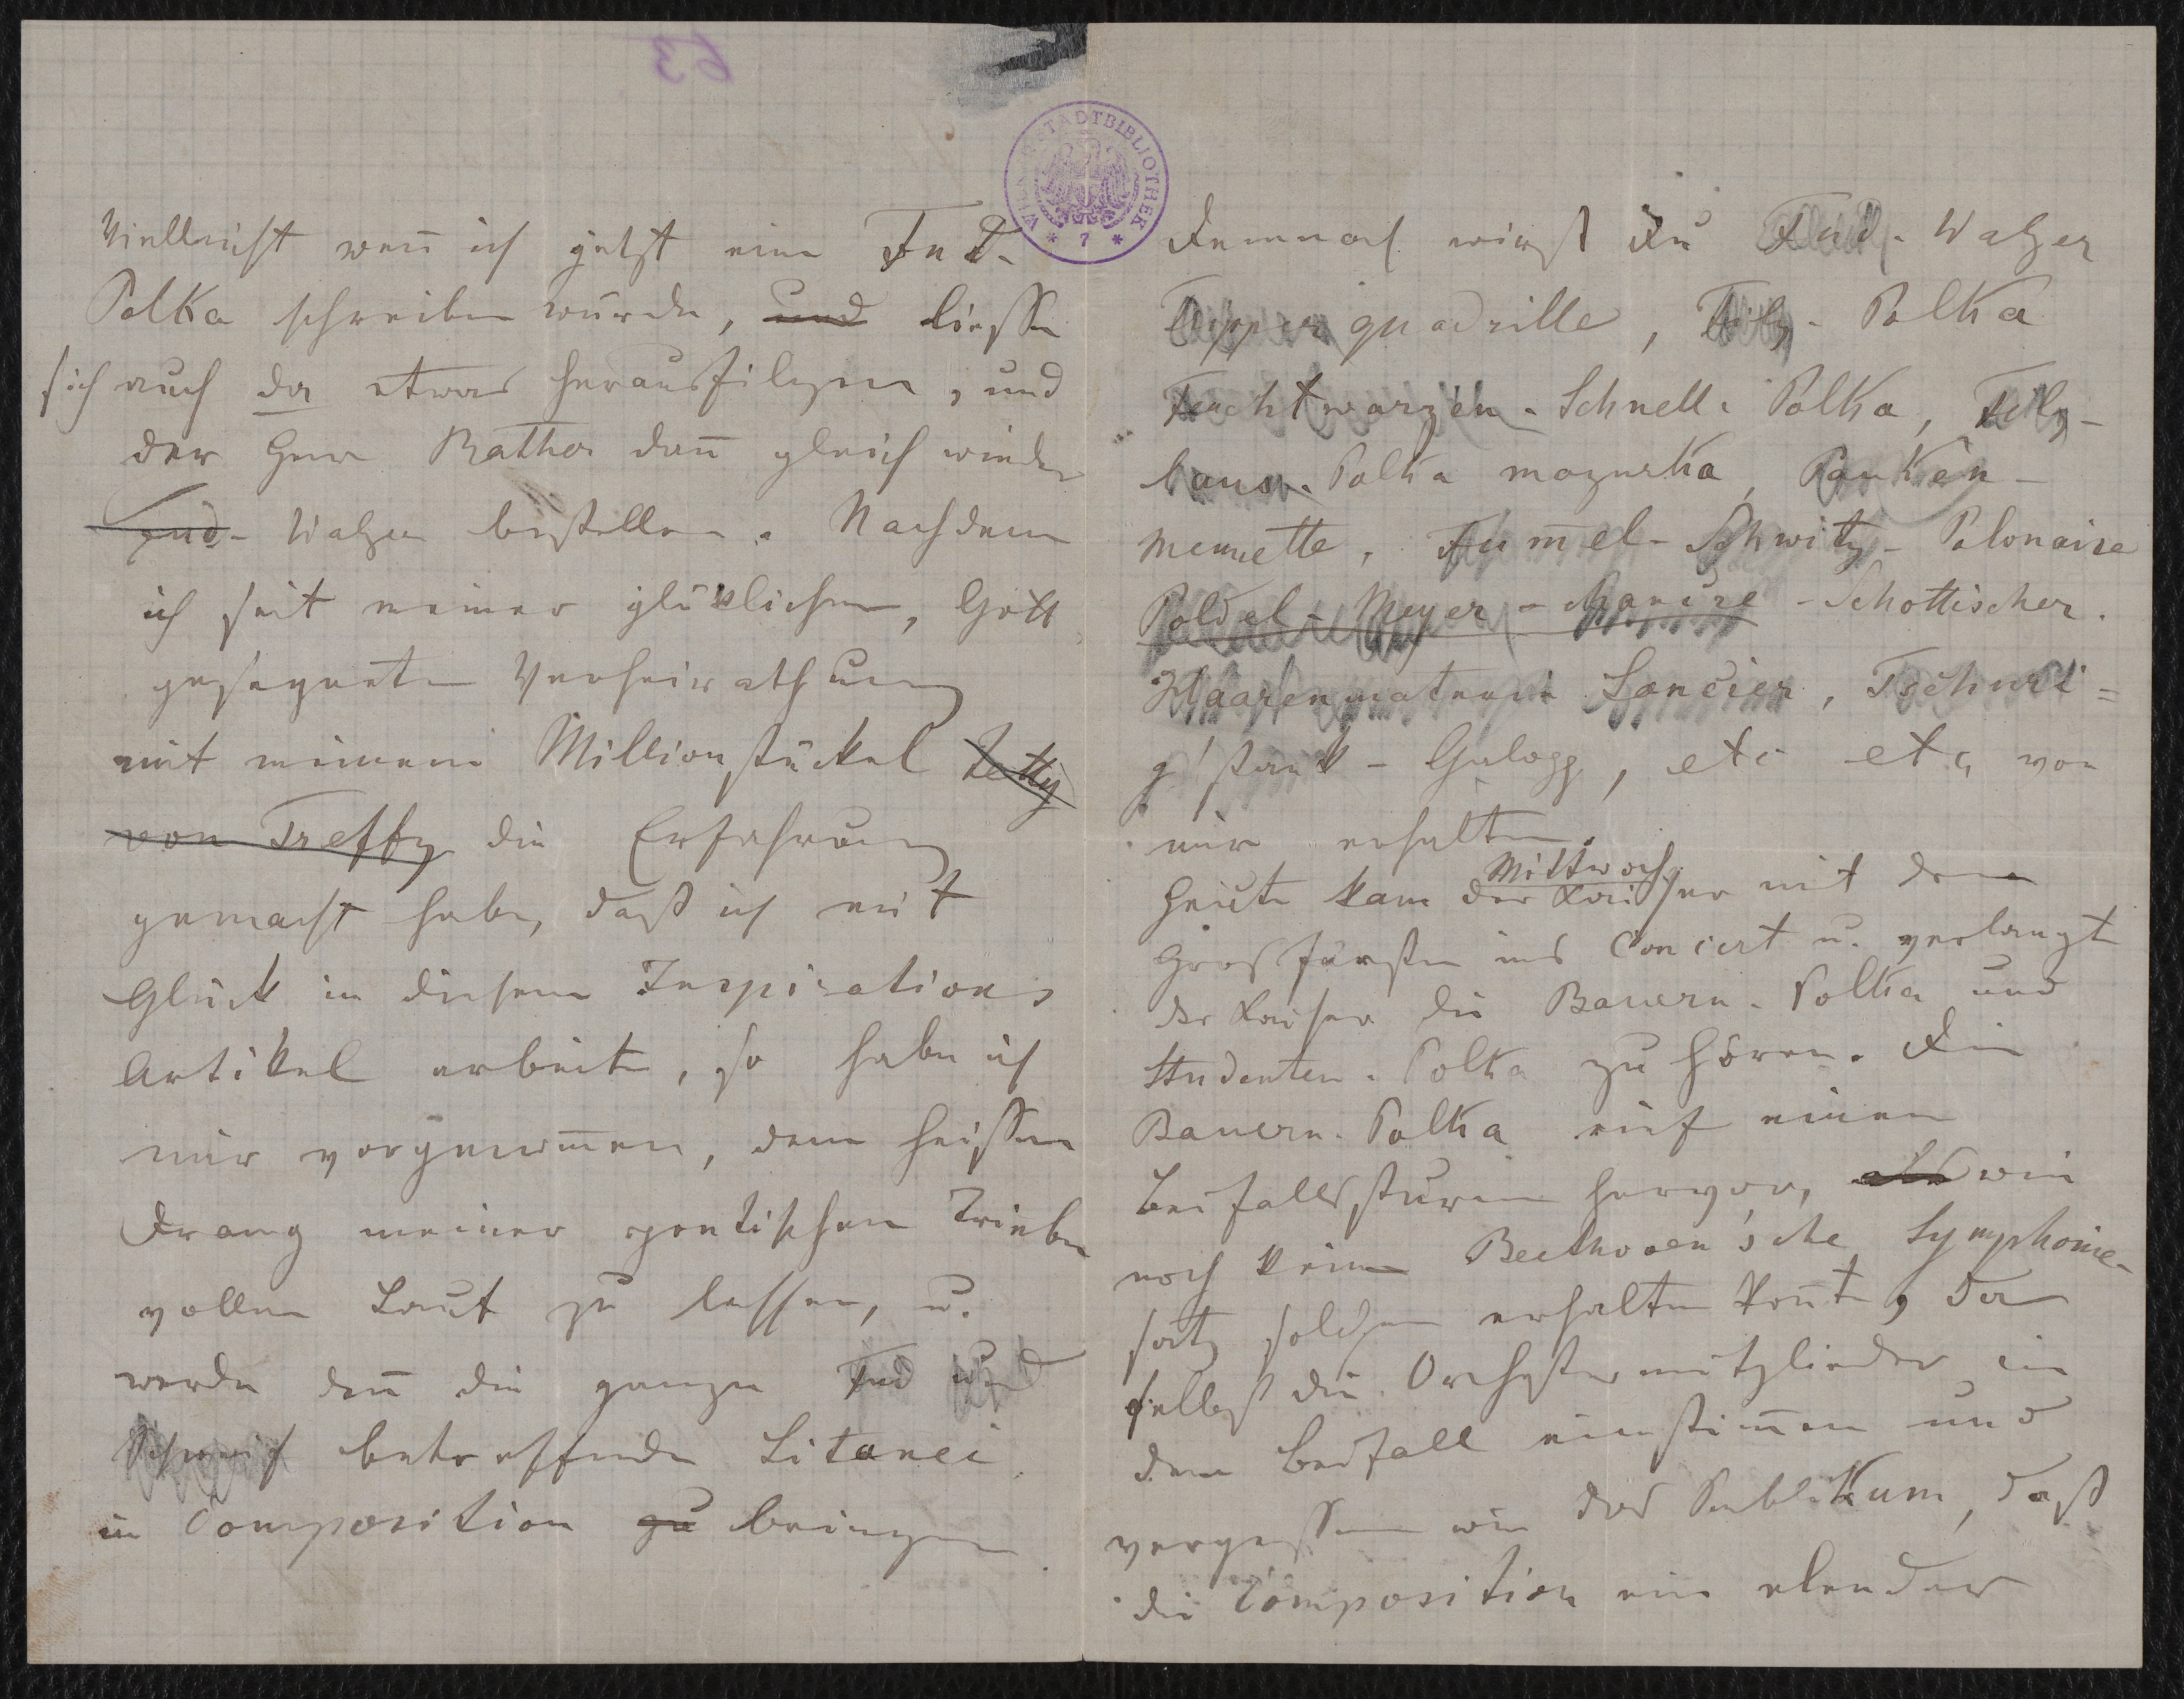 63
WIENER STADTBIBLIOTHEK
* 7 *
Vielleicht wen̄ ich jetzt eine Fud-
Polka schreiben würde, und liesse
sich auch da etwas herausfilzen, und
der Herr Rath dan̄ gleich wieder
Fud-Walzer bestellen. Nachdem
ich seit meiner glücklichen, Gott
gesegneten Verheirathung
mit meinem Millionstückel Jetty
von Treffz die Erfahrung
gemacht habe, daß ich mit
Glück in diesem Inspirations
Artikel arbeite, so habe ich
mir vorgenom̄en, dem heissen
Drang meiner poetischen Triebe
vollen Lauf zu lassen, u.
werde den̄ die ganze Fud und
Schweif betreffende Litanei
in Composition zu bringen
Demnach wirst Du Fud-Walzer
Tipper quadrille, Filz-Polka
Feuchtwarzen-Schnell-Polka, Filz-
laus-Polka mazurka, Pauken-
Menuette, Fum̄el-Schwitz-Polonaise
Poldel-Meyer-Marie-Schottischer.
Haarenmaterie Lancier, Tschuri=
g'stank-Galopp, etc etc von
mir erhalten.
Mittwoch
Heute kam der Kaiser mit dem
Grosfürsten ins Concert u. verlangte
der Kaiser die Bauern-Polka und
Studenten-Polka zu hören. Die
Bauern-Polka rief einen
Beifallssturm hervor, als wie
noch keine Beethoven'sche Symphonie-
satz solchen erhalten kon̄te, da
selbst die Orchestermitglieder in
den Beifall einstim̄en und
vergessen wie das Publikum, daß
die Composition ein elender